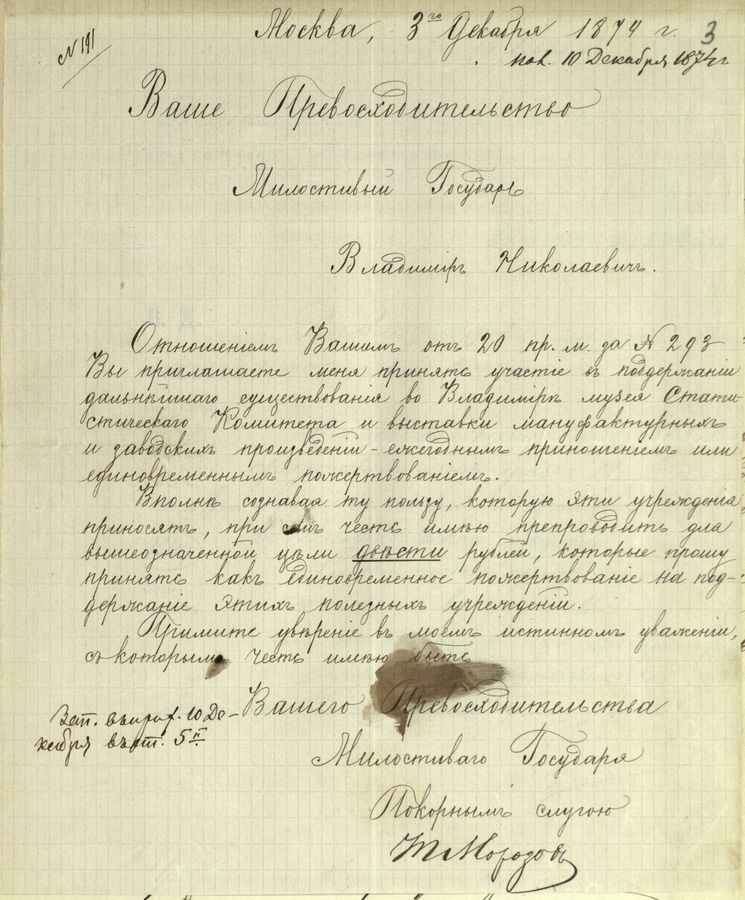 № 191
Москва, 3го Декабря 1874 г. 3
пол. 10 Декабря 1874 г
Ваше Превосходительство
Милостивый Государь
Владимiръ Николаевичъ.
Отношенiемъ Вашимъ отъ 20 пр. м. за № 293
Вы приглашаете меня принять участiе въ поддержанiи
дальнѣйшаго существованiя во Владимiрѣ музея Стати-
стическаго Комитета и выставки мануфактурныхъ
и заводскихъ произведенiй - ежегоднымъ приношенiемъ или
единовременнымъ пожертвованiемъ.
Вполнѣ сознавая ту пользу, которую эти учрежденiя
приносятъ, при семъ честь имѣю препроводить для
вышеозначенной цѣли двѣсти рублей, которые прошу
принять какъ единовременное пожертвованiе на под-
держанiе этихъ полезныхъ учрежденiй.
Примите увѣренiе въ моемъ истинномъ уваженiи,
съ которымъ честь имѣю быть
Вашего Превосходительства
Зап. въ прих. 10 Де-
кабря въ ст. 5й
Милостиваго Государя
Покорнымъ слугою
Т Морозовъ